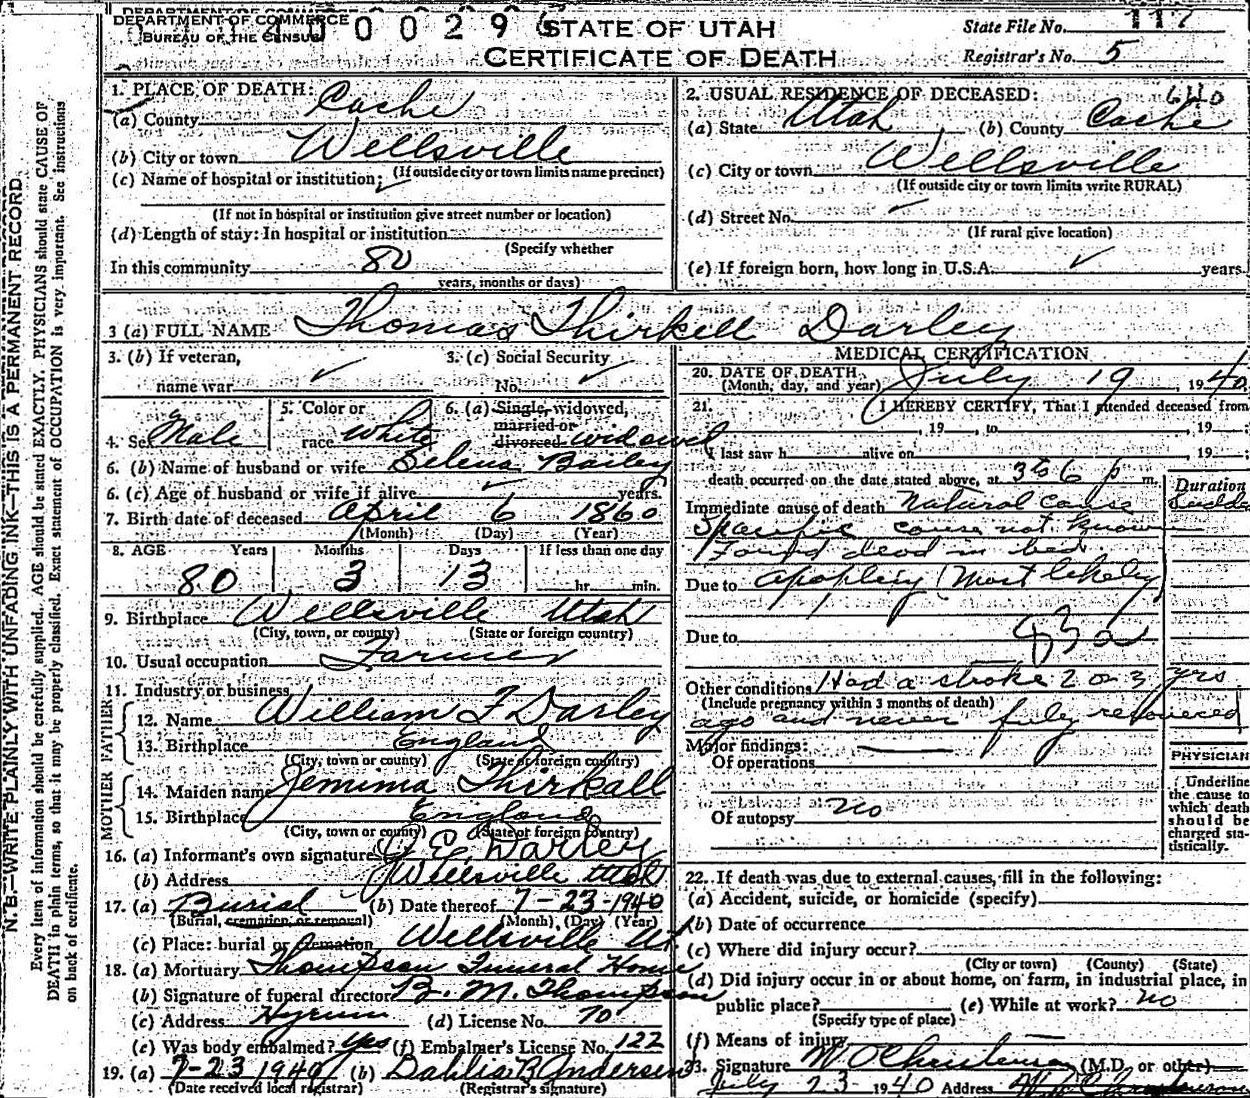 DEPARTMENT OF COMMERCE
BUREAU OF THE CENSUS
STATE OF UTAH
CERTIFICATE OF DEATH
State File No. 117
Registrar's No. 5
N. B.—WRITE PLAINLY WITH UNFADING INK—THIS IS A PERMANENT RECORD.
Every item of information should be carefully supplied. AGE should be stated EXACTLY. PHYSICIANS should state CAUSE OF
DEATH in plain terms, so that it may be properly classified. Exact statement of OCCUPATION is very important. See instructions
on back of certificate.
1. PLACE OF DEATH:
(a) County Cache
(b) City or town Wellsville
(If outside city or town limits name precinct)
(c) Name of hospital or institution:
(If not in hospital or institution give street number or location)
(d) Length of stay: In hospital or institution
(Specify whether
In this community 80
years, months or days)
2. USUAL RESIDENCE OF DECEASED: 640
(a) State Utah (b) County Cache
(c) City or town Wellsville
(If outside city or town limits write RURAL)
(d) Street No.
(If rural give location)
(e) If foreign born, how long in U.S.A. years.
3 (a) FULL NAME Thomas Thirkell Darley
3. (b) If veteran,
name war
3. (c) Social Security
No.
4. Sex Male
5. Color or
race White
6. (a) Single, widowed,
married or
divorced widowed
6. (b) Name of husband or wife Selena Bailey
6. (c) Age of husband or wife if alive years.
7. Birth date of deceased April 6 1860
(Month) (Day) (Year)
8. AGE Years Months Days If less than one day
80 3 13 hr. min.
9. Birthplace Wellsville Utah
(City, town, or county) (State or foreign country)
10. Usual occupation Farmer
11. Industry or business
FATHER
12. Name William F Darley
13. Birthplace England
(City, town or county) (State or foreign country)
MOTHER
14. Maiden name Jemima Thirkall
15. Birthplace England
(City, town or county) (State or foreign country)
16. (a) Informant's own signature E. Darley
(b) Address Wellsville Utah
17. (a) Burial (b) Date thereof 7-23-1940
(Burial, cremation or removal) (Month) (Day) (Year)
(c) Place: burial or cremation Wellsville Ut
18. (a) Mortuary Thompson Funeral Home
(b) Signature of funeral director B. M. Thompson
(c) Address Hyrum (d) License No. 70
(e) Was body embalmed? Yes (f) Embalmer's License No. 122
19. (a) 7-23 1940 (b) Dahlia B Andersen
(Date received local registrar) (Registrar's signature)
MEDICAL CERTIFICATION
20. DATE OF DEATH
(Month, day, and year) July 19, 1940
21. I HEREBY CERTIFY, That I attended deceased from
, 19 , to , 19 ;
I last saw h alive on , 19 ;
death occurred on the date stated above, at 3 to 6 p m.
Duration
Immediate cause of death Natural cause Sudde
Specific cause not know
Found dead in bed
Due to apoplexy (Most likely)
Due to 83a
Other conditions Had a stroke 2 or 3 yrs
(Include pregnancy within 3 months of death)
ago and never fuly recovered
Major findings:
Of operations
Of autopsy no
PHYSICIAN
Underline
the cause to
which death
should be
charged sta-
tistically.
22. If death was due to external causes, fill in the following:
(a) Accident, suicide, or homicide (specify)
(b) Date of occurrence
(c) Where did injury occur?
(City or town) (County) (State)
(d) Did injury occur in or about home, on farm, in industrial place, in
public place? (e) While at work? no
(Specify type of place)
(f) Means of injury
23. Signature W O Christensen (M.D. or other)
July 23 1940 Address